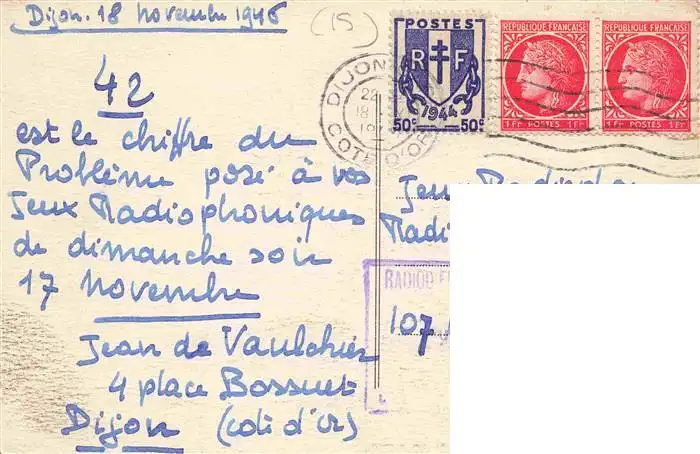 Dijon. 18 novembre 1946
(15)
42
est le chiffre du
Problème posé à vos
Jeux Radiophoniques
de dimanche soir
17 novembre
Jean de Vaulchier
4 place Bossuet
Dijon (cote d'Or)
POSTES
RF
1944
50c 50c
REPUBLIQUE FRANÇAISE
1Fr POSTES 1Fr
REPUBLIQUE FRANÇAISE
1Fr POSTES 1Fr
DIJON
22
18
19
COTE D'OR
Jeux
RADIOD
107